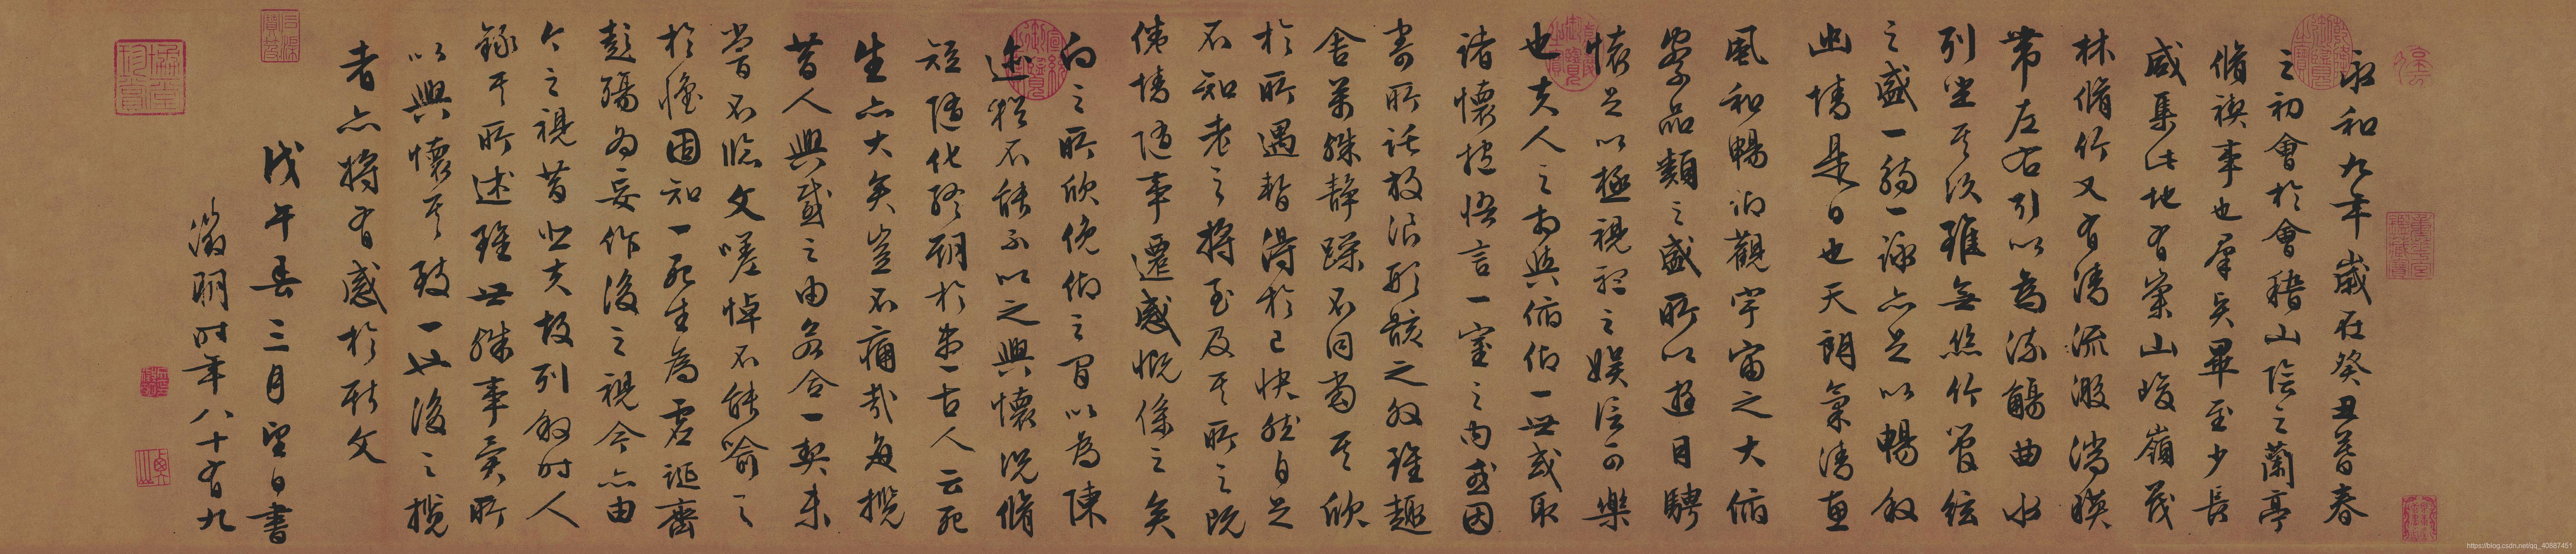 永和九年歲在癸丑暮春
之初會於會稽山陰之蘭亭
脩禊事也羣賢畢至少長
咸集此地有崇山峻嶺茂
林脩竹又有清流激湍暎
帶左右引以為流觴曲水
列坐其次雖無絲竹管絃
之盛一觴一詠亦足以暢敘
幽情是日也天朗氣清惠
風和暢仰觀宇宙之大俯
察品類之盛所以遊目騁
懷足以極視聽之娛信可樂
也夫人之相與俯仰一世或取
諸懷抱悟言一室之內或因
寄所託放浪形骸之外雖趣
舍萬殊靜躁不同當其欣
於所遇暫得於己快然自足
不知老之將至及其所之既
倦情隨事遷感慨係之矣
向之所欣俛仰之間以為陳
迹猶不能不以之興懷況脩
短隨化終期於盡古人云死
生亦大矣豈不痛哉每攬
昔人興感之由若合一契未
嘗不臨文嗟悼不能喻之
於懷固知一死生為虛誕齊
彭殤為妄作後之視今亦由
今之視昔悲夫故列敘時人
錄其所述雖世殊事異所
以興懷其致一也後之攬
者亦將有感於斯文
戊午春三月望日書
徵明時年八十有九
https://blog.csdn.net/qq_40887451